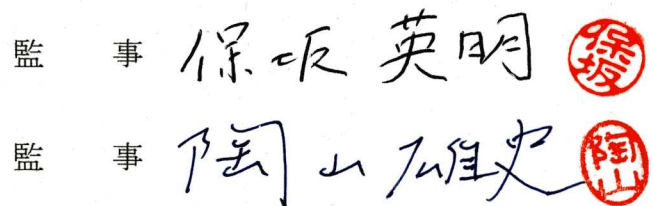 監 事 保坂 英明 保坂
監 事 陶山 雄史 陶山